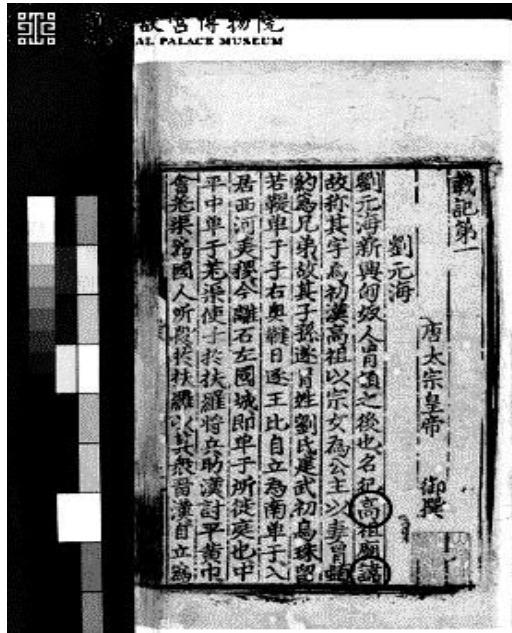 故宮博物院
AL PALACE MUSEUM
載記第一
唐太宗皇帝 御撰
劉元海
劉元海新興匈奴人冒頓之後也名犯高祖廟諱
故称其字焉初漢高祖以宗女為公主以妻冒頓
約爲兄弟故其子孫遂冒姓劉氏建武初烏珠留
若鞮單于子右奧鞬日逐王比自立為南單于入
居西河美稷今離石左國城即單于所徙庭也中
平中單于羌渠使子於扶羅將兵助漢討平黃巾
會羌渠爲國人所殺於扶羅以其衆留漢自立爲